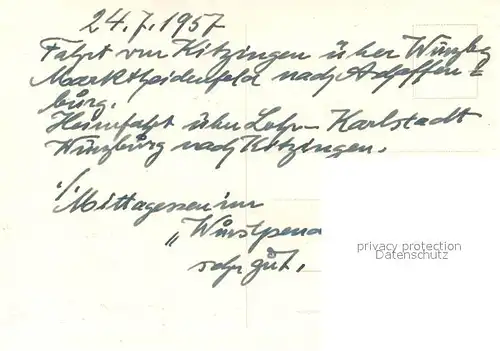 24.7.1957
Fahrt von Kitzingen über Würzbg
Marktheidenfeld nach Aschaffen=
burg.
Heimfahrt über Lohr – Karlstadt
Würzburg nach Kitzingen.
./.
Mittagessen im
„Wurstpena
sehr gut.
privacy protection
Datenschutz